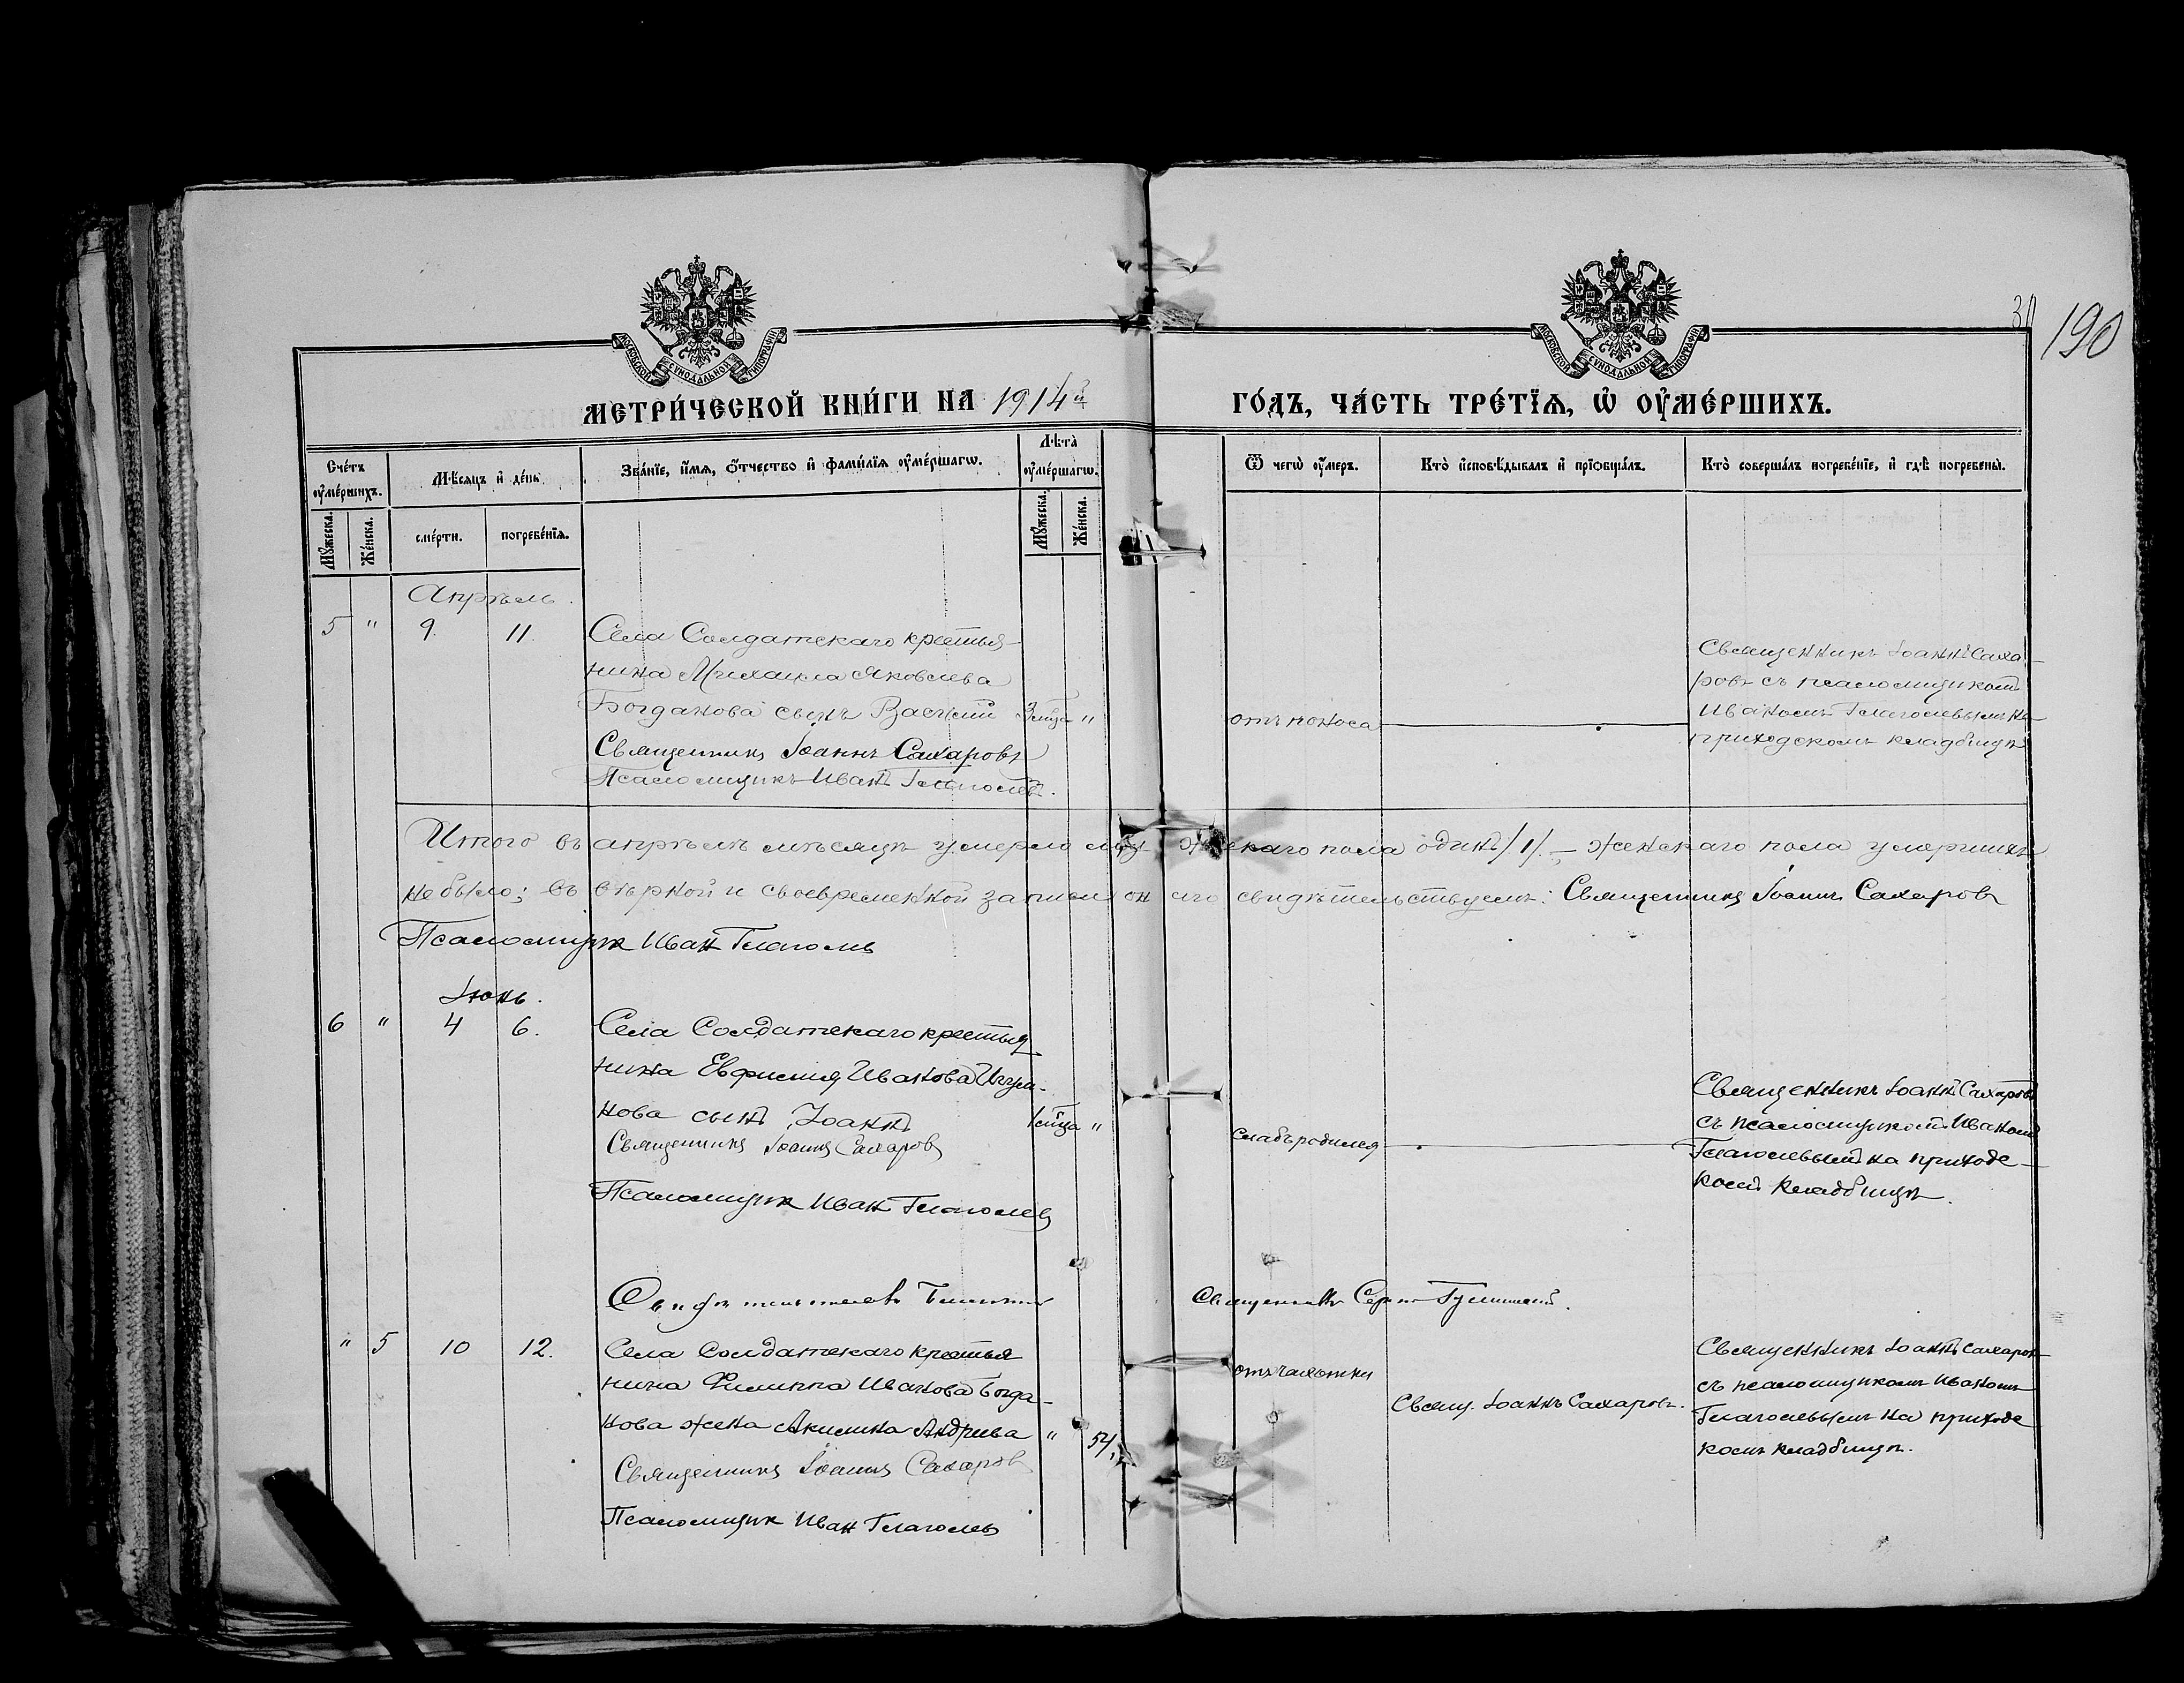 МОСКОВСКОЙ СѴНОДАЛЬНОЙ ТИПОГРАФІИ
МОСКОВСКОЙ СѴНОДАЛЬНОЙ ТИПОГРАФІИ
190
МЕТРИ́ЧЕСКОЙ КНИ́ГИ НА 1914й
ГО́ДЪ, ЧА́СТЬ ТРЕ́ТЇѦ, Ѡ҆ ОУ҆МЕ́РШИХЪ.
Сче́тъ оу҆ме́ршихъ.
Мѣ́сяцъ и҆ де́нь
Зва́нїе, и҆́мя, ѻ҆́тчество и҆ фами́лїя оу҆ме́ршагѡ.
Лѣта̀ оу҆ме́ршагѡ.
Ѿ чегѡ̀ оу҆́меръ.
Кто̀ и҆сповѣ́дывалъ и҆ прїѡбща́лъ.
Кто̀ соверша́лъ погребе́нїе, и҆ гдѣ̀ погребены̀.
Мꙋ́жеска.
Же́нска.
сме́рти.
погребе́нїя.
Мꙋ́жеска.
Же́нска.
Апрѣль.
5 " 9. 11. Села Солдатскаго крестья-
нина Михаила Яковлева
Богданова сынъ Василій "
Священникъ Іоаннъ Сахаровъ
Псаломщикъ Иванъ Глаголевъ.
отъ поноса
Священникъ Іоаннъ Саха-
ровъ съ псаломщикомъ
Иваномъ Глаголевымъ на
приходскомъ кладбищѣ
Итого въ апрѣлѣ мѣсяцѣ умерло мужескаго пола одинъ /1/. – женскаго пола умершихъ
не было; въ вѣрной и своевременной записи сего свидѣтельствуемъ: Священникъ Іоаннъ Сахаровъ
Псаломщикъ Иванъ Глаголевъ
Іюнь.
6 " 4 6. Села Солдатскаго крестья
нина Ефимія Иванова
нова сынъ Іоаннъ 1 мѣсяца "
Священникъ Іоаннъ Сахаровъ
Псаломщикъ Иванъ Глаголевъ
слабъ родился
Священникъ Іоаннъ Сахаровъ
съ псаломщикомъ Иваномъ
Глаголевымъ на приходс-
комъ кладбищѣ.
Священникъ
" 5 10 12. Села Солдатскаго крестья
нина Филиппа Иванова Богда-
нова жена Акилина Андреева " 54.
Священникъ Іоаннъ Сахаровъ
Псаломщикъ Иванъ Глаголевъ
отъ чахотки
Свящ. Іоаннъ Сахаровъ.
Священникъ Іоаннъ Сахаровъ
съ псаломщикомъ Иваномъ
Глаголевымъ на приходс
комъ кладбищѣ.